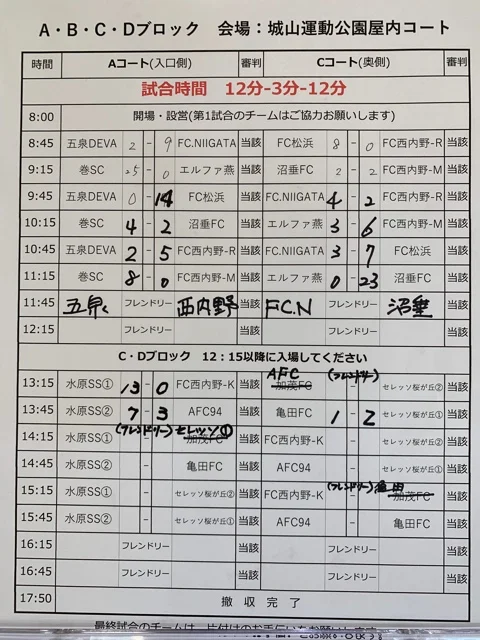 A・B・C・Dブロック 会場：城山運動公園屋内コート
時間 Aコート(入口側) 審判 Cコート(奥側) 審判
試合時間 12分-3分-12分
8:00 開場・設営(第1試合のチームはご協力お願いします)
8:45 五泉DEVA 2 - 9 FC.NIIGATA 当該 FC松浜 8 - 0 FC西内野-R 当該
9:15 巻SC 25 - 0 エルファ燕 当該 沼垂FC 2 - 2 FC西内野-M 当該
9:45 五泉DEVA 0 - 14 FC松浜 当該 FC.NIIGATA 4 - 2 FC西内野-R 当該
10:15 巻SC 4 - 2 沼垂FC 当該 エルファ燕 3 - 6 FC西内野-M 当該
10:45 五泉DEVA 2 - 5 FC西内野-R 当該 FC.NIIGATA 3 - 7 FC松浜 当該
11:15 巻SC 8 - 0 FC西内野-M 当該 エルファ燕 0 - 23 沼垂FC 当該
11:45 五泉 フレンドリー 西内野 当該 FC.N フレンドリー 沼垂 当該
12:15 フレンドリー 当該 フレンドリー 当該
C・Dブロック 12：15以降に入場してください
13:15 水原SS① 13 - 0 FC西内野-K 当該 AFC 加茂FC (フレンドリー) - セレッソ桜が丘② 当該
13:45 水原SS② 7 - 3 AFC94 当該 亀田FC 1 - 2 セレッソ桜が丘① 当該
14:15 水原SS① (フレンドリー) - セレッソ① 加茂FC 当該 FC西内野-K - セレッソ桜が丘② 当該
14:45 水原SS② - 亀田FC 当該 AFC94 - セレッソ桜が丘① 当該
15:15 水原SS① - セレッソ桜が丘② 当該 FC西内野-K (フレンドリー) - 亀田 加茂FC 当該
15:45 水原SS② - セレッソ桜が丘① 当該 AFC94 - 亀田FC 当該
16:15 フレンドリー 当該 フレンドリー 当該
16:45 フレンドリー 当該 フレンドリー 当該
17:50 撤収完了
最終試合のチームは、片付けのお手伝いをお願いします